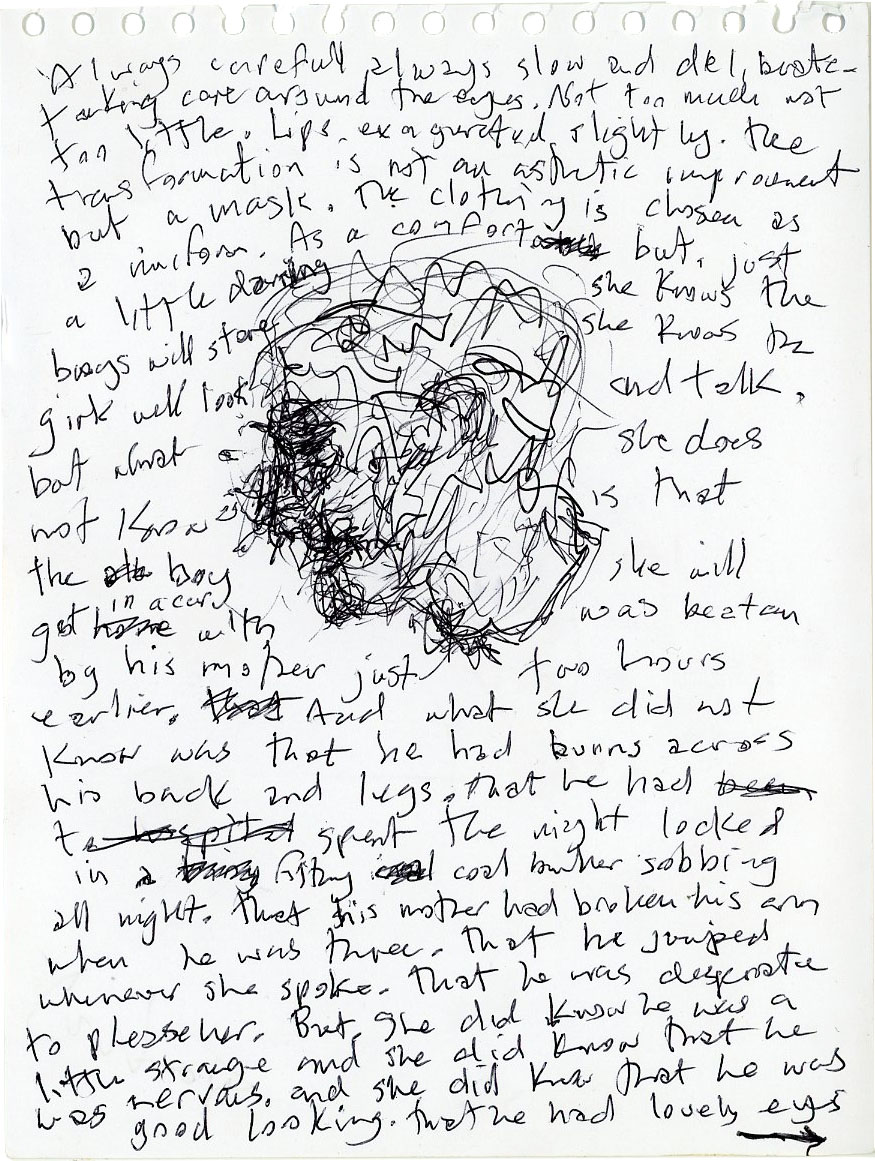 Always carefull always slow and deliberate-
taking care around the eyes. Not too much not
too little. Lips exagurated slightly. The
transformation is not an asthetic improvement
but a mask. The clothing is chosen as
a uniform. As a comfort but, just
a little daring she knows the
boys will stare she knows the
girls will look and talk.
but what she does
not know is that
the boy she will
get in a car with was beatan
by his mother just two hours
earlier. And what she did not
know was that he had burns across
his back and legs. that he had
spent the night locked
in a coal bunker sobbing
all night. That his mother had broken his arm
when he was three. That he jumped
whenever she spoke. That he was desperate
to please her. But, she did know he was a
little strange and she did know that he
was nervous. and she did know that he was
good looking. that he had lovely eyes